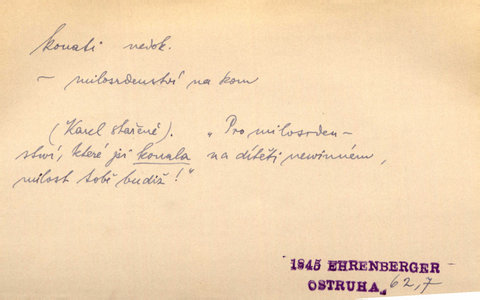 konati nedok.
~ milosrdenství na kom
(Karel stařeně). „Pro milosrden-
ství, které jsi konala na dítěti nevinném,
milost tobě budiž!"
1845 EHRENBERGER
OSTRUHA 62,7